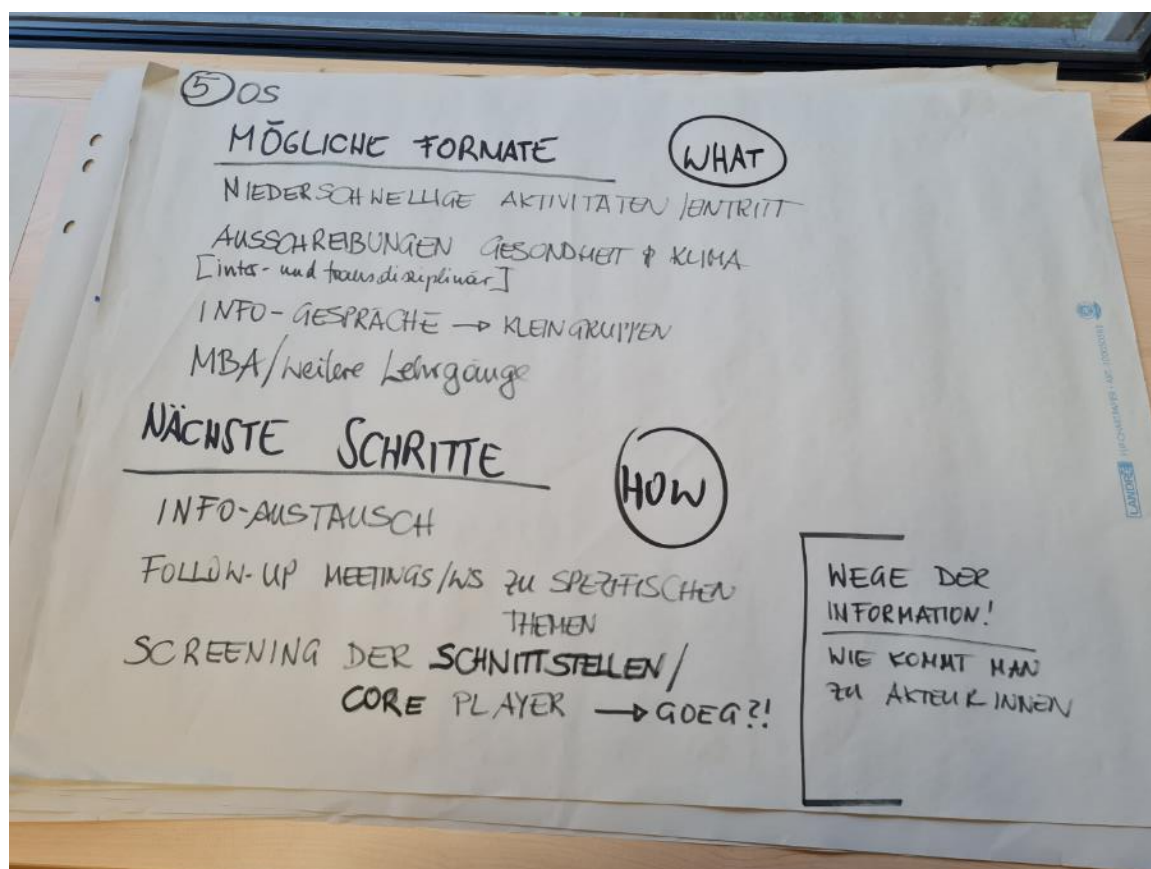 5 OS
MÖGLICHE FORMATE
WHAT
NIEDERSCHWELLIGE AKTIVITÄTEN / EINTRITT
AUSSCHREIBUNGEN GESUNDHEIT & KLIMA
[inter- und transdisziplinär]
INFO-GESPRÄCHE → KLEINGRUPPEN
MBA/weitere Lehrgänge
NÄCHSTE SCHRITTE
HOW
INFO-AUSTAUSCH
FOLLOW-UP MEETINGS/WS ZU SPEZIFISCHEN
THEMEN
SCREENING DER SCHNITTSTELLEN/
CORE PLAYER → GOEG?!
WEGE DER
INFORMATION!
WIE KOMMT MAN
ZU AKTEURINNEN
LANDRÉ